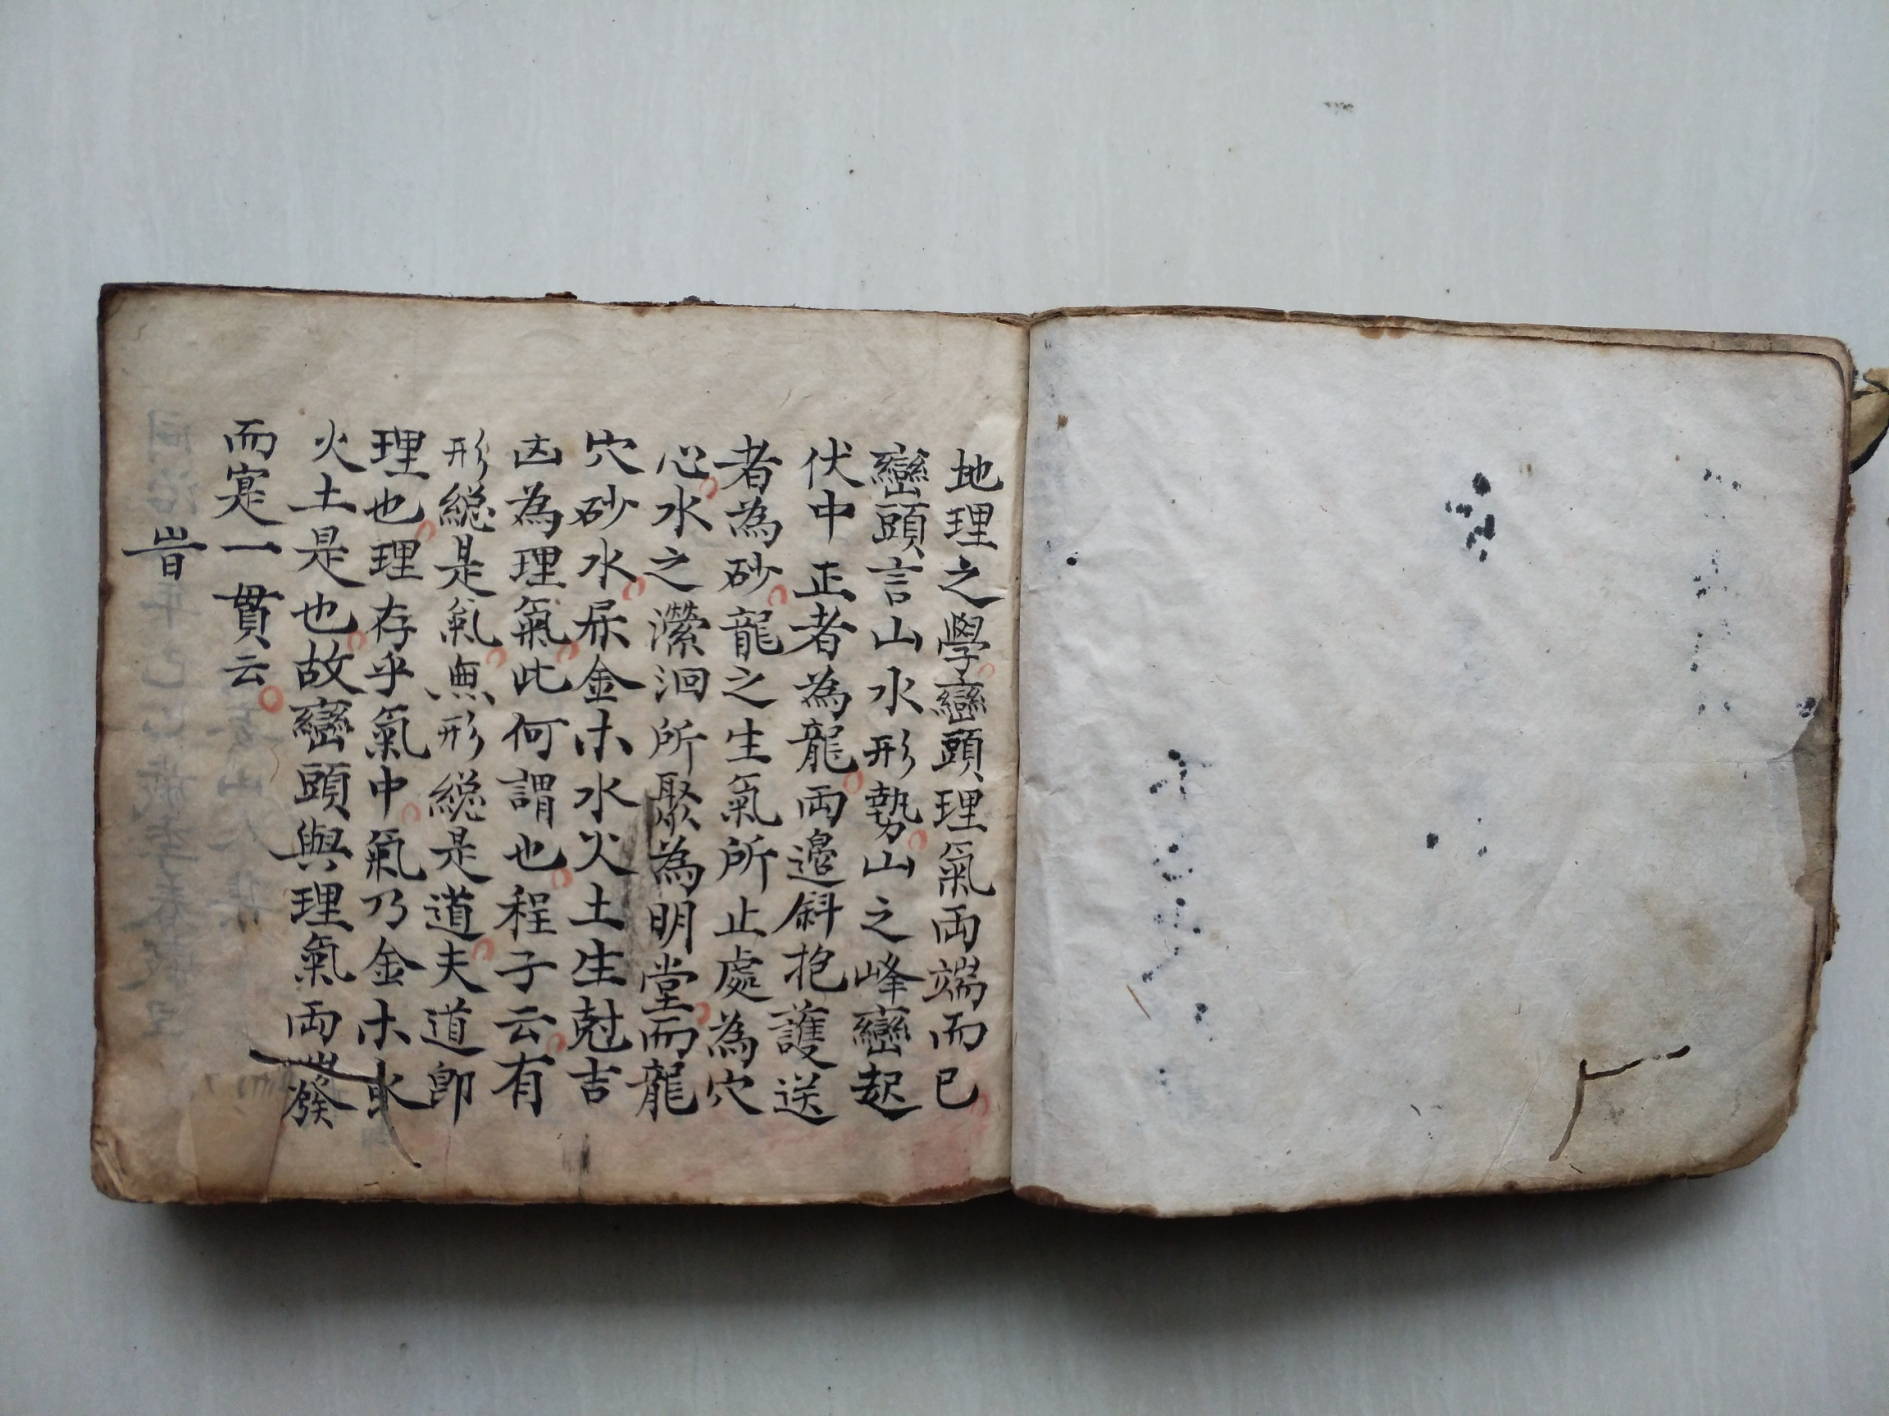 地理之學巒頭理氣両端而已
巒頭言山水形勢山之峰巒起
伏中正者為龍両邉斜抱護送
者為砂龍之生氣所止處為穴
心水之瀠洄所聚為明堂而龍
穴砂水屎金木水火土生尅吉
凶為理氣此何謂也程子云有
形總是氣無形總是道夫道即
理也理存乎氣中氣乃金木水
火土是也故巒頭與理氣両發
而寔一貫云
旹